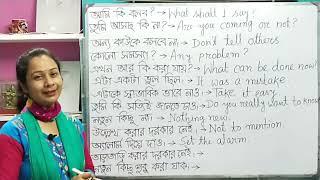 আমি কি বলব? → What shall I say?
তুমি আসছ কি না? → Are you coming or not?
অন্য কাউকে বলবে না → Don't tell others
কোনো সমস্যা? → Any problem?
এখন আর কি করা যায়? → What can be done now?
এটা একটা ভুল ছিল। → It was a mistake
এটাকে স্বাভাবিক ভাবে নাও। → Take it easy
তুমি কি সত্যিই জানতে চাও। → Do you really want to know
নতুন কিছু না। → Nothing new.
উল্লেখ করার দরকার নেই। → Not to mention.
অ্যালার্ম দিয়ে দাও। → Set the alarm.
তাড়াতাড়ি করার দরকার নেই।
নতুন কিছু শুরু করা যাক। →